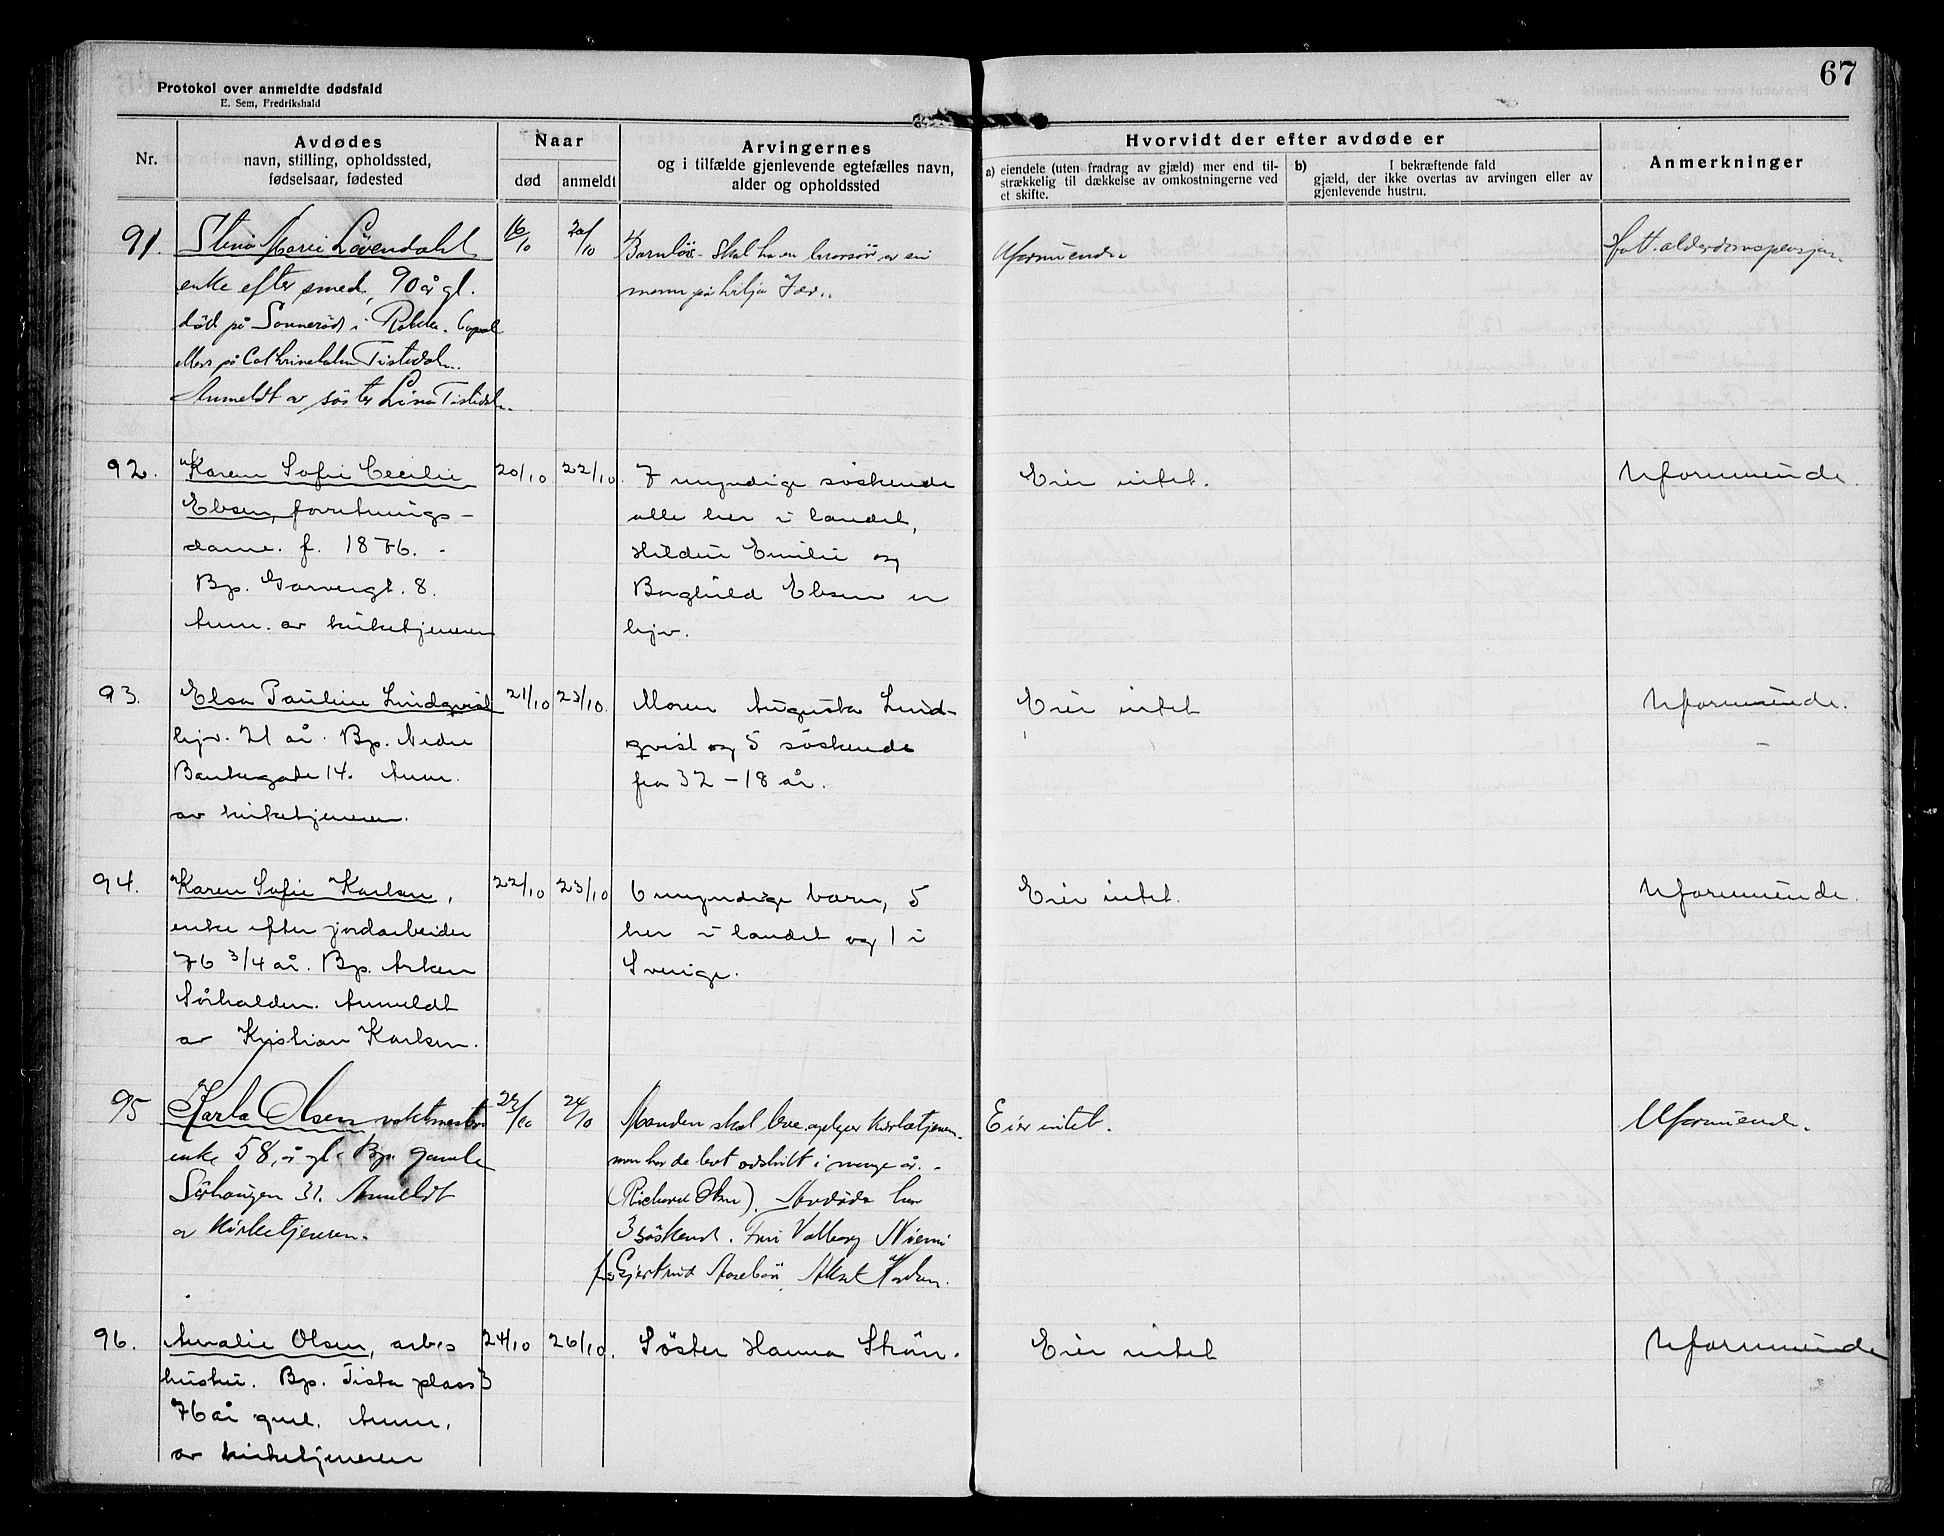 67
Protokol over anmeldte dødsfald
E. Sem, Fredrikshald
Nr.
Avdødes
navn, stilling, opholdssted,
fødselsaar, fødested
Naar
død
anmeldt
Arvingernes
og i tilfælde gjenlevende egtefælles navn,
alder og opholdssted
Hvorvidt der efter avdøde er
a) eiendele (uten fradrag av gjæld) mer end til-
strækkelig til dækkelse av omkostningerne ved
et skifte.
b) I bekræftende fald
gjæld, der ikke overtas av arvingen eller av
gjenlevende hustru.
Anmerkninger
91.
Stina Marie Lövendahl
enke efter smed, 90 år gl.
död på Sonneröd i Rokke.
ellers på Cathrineholm Tistedalen.
Anmeldt av söster Lina Tistedalen.
16/10
20/10
Barnlös. Skal ha en brorsön
Uformuende
Hatt alderdomspensjon.
92.
Karen Sofie Cecilie
Ebsen, forretnings-
dame. f. 1876. -
Bp. Garvergt. 8.
Anm. av kirketjeneren
20/10
22/10.
7 myndige söskende
alle her i landet,
Hildur Emilie og
Borghild Ebsen er
hjv.
Eier intet.
Uformuende.
93.
Elsa Pauline Lindqvist
hjv. 21 år. Bp. Nedre
Bankegate 14. Anm.
av kirketjeneren.
21/10
23/10.
Moren Augusta Lind-
qvist og 5 söskende
fra 32 - 18 år.
Eier intet
Uformuende.
94.
Karen Sofie Karlsen,
enke efter jordarbeider
76 3/4 år. Bp. Asken
Sörhalden. Anmeldt
av Kristian Karlsen.
22/10
23/10
6 myndige barn, 5
her i landet og 1 i
Sverige.
Eier intet.
Uformuende.
95
Karla Olsen vaktmester
enke 58 år gl. Bp. gamle
Sörhaugen 31. Anmeldt
av Kirketjeneren.
23/10
24/10
Manden skal leve, opgir kirketjeneren.
men har de levt adskilt i mange år. -
(Richard Olsen). Avdøde har
3 söskend. Fru Valborg Niemi
fr Gjertrud Aasebö, Aksel Karlsen.
Eier intet.
Uformuende.
96.
Amalie Olsen, arbs
hustru. Bp. Tista plass 3
76 år gml. Anm.
av kirketjeneren
24/10
26/10.
Söster Hanna Ström.
Eier intet
Uformuende